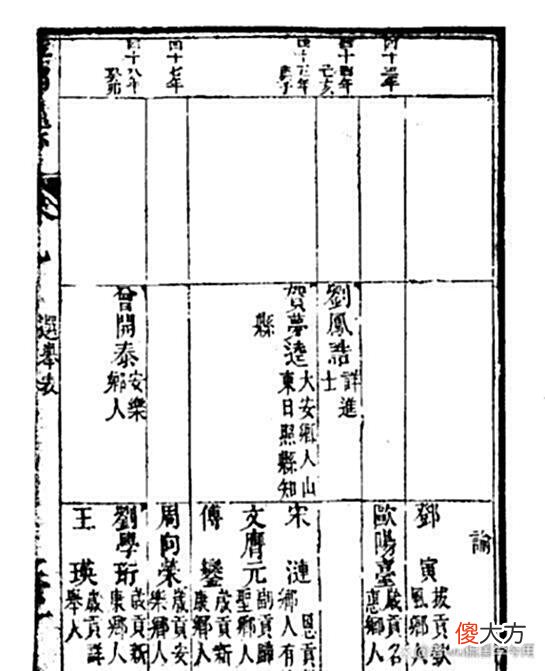 四十四年
己亥
四十五年
庚子
四十七年
四十八年
癸卯
劉鳳誥詳進
士
賀夢逵大安鄉人山
東日照縣知
縣
曾開泰安樂
鄉人
諭
鄧寅拔貢
風鄉人
歐陽臺歲貢名
惠鄉人
宋漣恩貢
鄉人有
文膺元副貢歸
聖鄉人
傅鑾歲貢新
康鄉人
周向榮歲貢安
樂鄉人
劉學珩歲貢新
康鄉人
王瑛歲貢詳
舉人
選舉表
傻大方